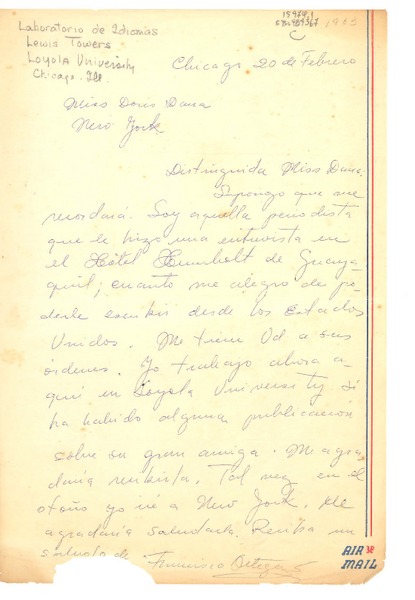 Laboratorio de Idiomas
Lewis Towers
Loyola University
Chicago. Ill.
1963
C
Chicago 20 de Febrero
Miss Doris Dana
New York
Distinguida Miss Dana.
Supongo que me
recordará. Soy aquella periodista
que le hizo una entrevista en
el Hotel Humbolt de Guaya
quil; cuanto me alegro de po
derle escribir desde los Estados
Unidos. Me tiene Ud a sus
órdenes. Yo trabajo ahora a-
quí en Loyola University. Si
ha habido alguna publicación
sobre su gran amiga. Me agra
daría recibirla. Tal vez en el
otoño yo iré a New York. Me
agradaría saludarla. Reciba un
saludo de Francisca
AIR
MAIL